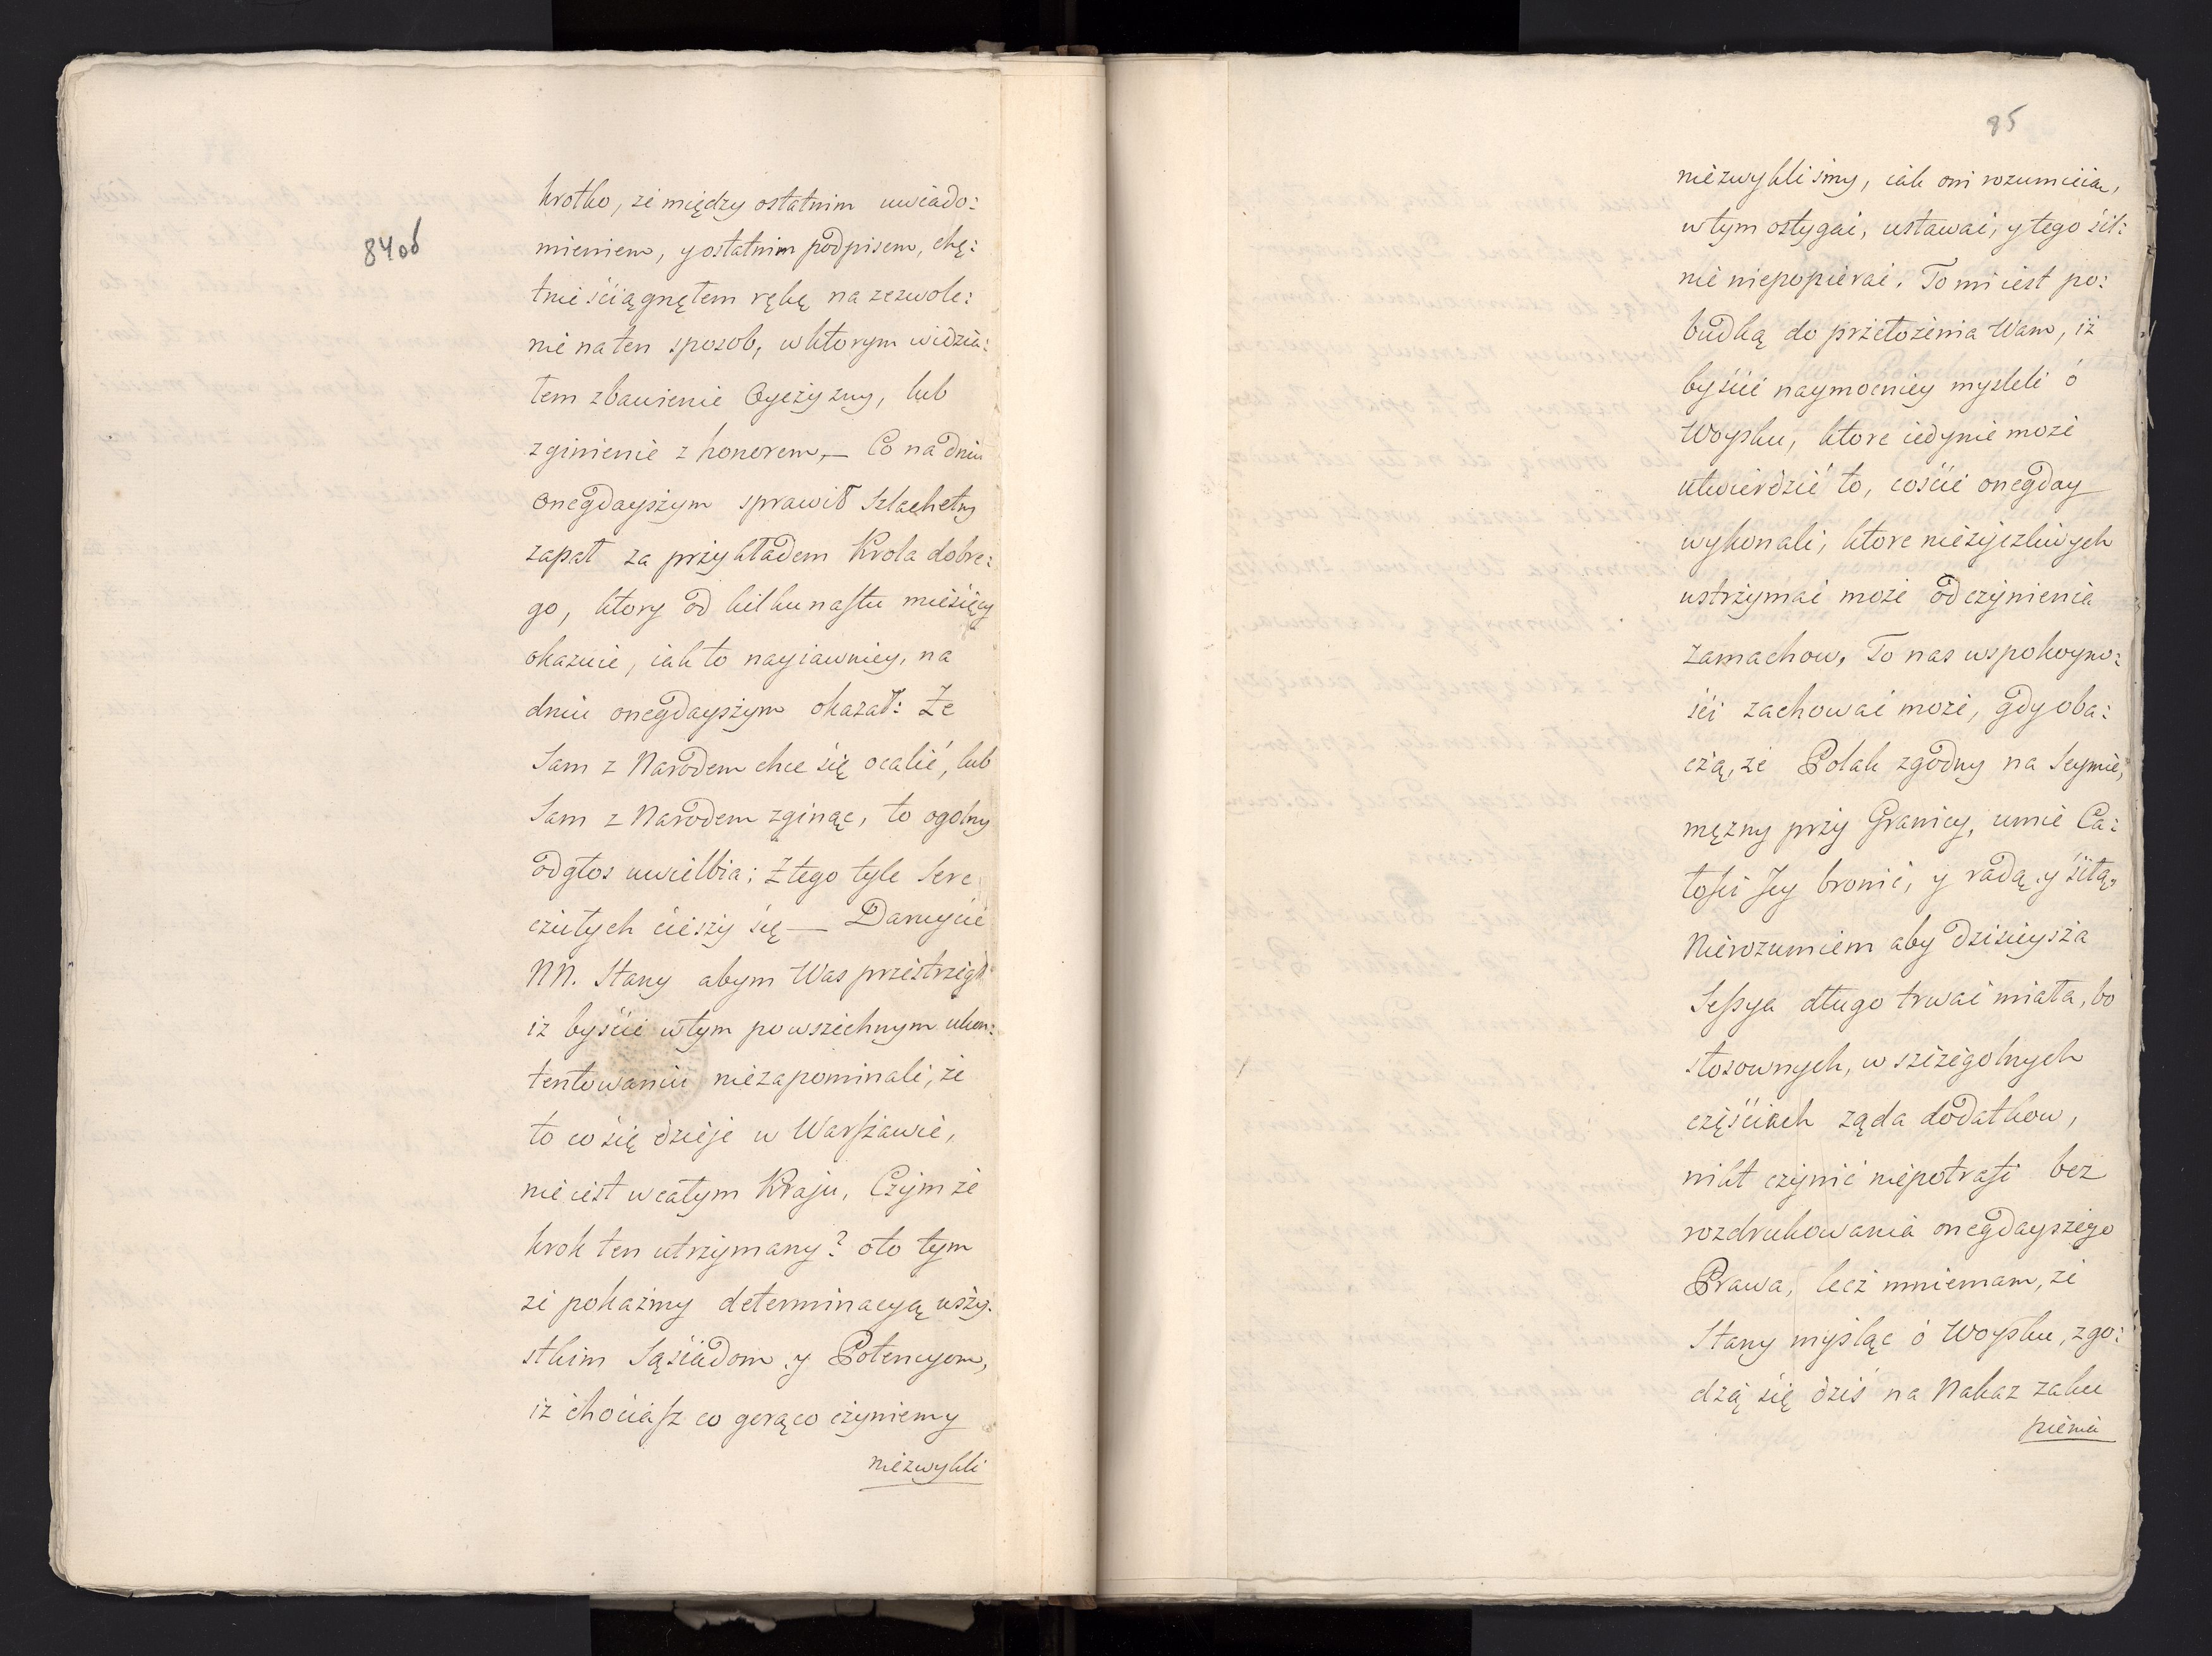 84 об
krotko, że między ostatnim uwiado:
mieniem, y ostatnim podpisem, chę:
tnie ściągnęłem rękę na zezwole:
nie na ten sposob, w ktorym widzia:
łem zbawienie Oyczyzny, lub
zginienie z honorem,— Co na dniu
onegdayszym sprawił Szlachetny
zapał za przykładem Krola dobre:
go, ktory od kilkunastu miesięcy
okazuie, iak to nayiawniey, na
dniu onegdayszym okazał: Że
Sam z Narodem chce się ocalić, lub
Sam z Narodem zginąc, to ogolny
odgłos uwielbia; Z tego tyle Serc
czułych cieszy się — Daruycie
NN. Stany abym Was przestrzegł
iz byście w tym powszechnym ukon:
tentowaniu niezapominali, że
to co się dzieje w Warszawie,
nie iest w całym Kraju, Czym że
krok ten utrzymany? oto tym
że pokażmy determinacyą wszy:
stkim Sąsiadom y Potencyom,
iż chociasz co gorąco czyniemy
niezwykli
85
niezwykliśmy, iak oni rozumieia,
w tym ostygać, ustawać, y tego sil:
nie niepopierać. To mi iest po:
budką do przełożenia Wam, iż
byście naymocniey mysleli o
Woysku, ktore iedynie może
utwierdzić to, coście onegday
wykonali, ktore nieżyczliwych
ustrzymać może od czynienia
zamachow, To nas w spokoyno:
ści zachować może, gdy oba:
czą, że Polak zgodny na Seymie,
mężny przy Granicy, umie Ca:
łości Jey bronić, y radą y siłą,
Nierozumiem aby dzisieysza
Sessya długo trwać miała, bo
stosownych, w szczegolnych
częściach ząda dodatkow,
nikt czynić niepotrafi bez
rozdrukowania onegdayszego
Prawa, lecz mniemam, że
Stany myśląc o Woysku, zgo:
dzą się dziś na Nakaz zaku
pienia